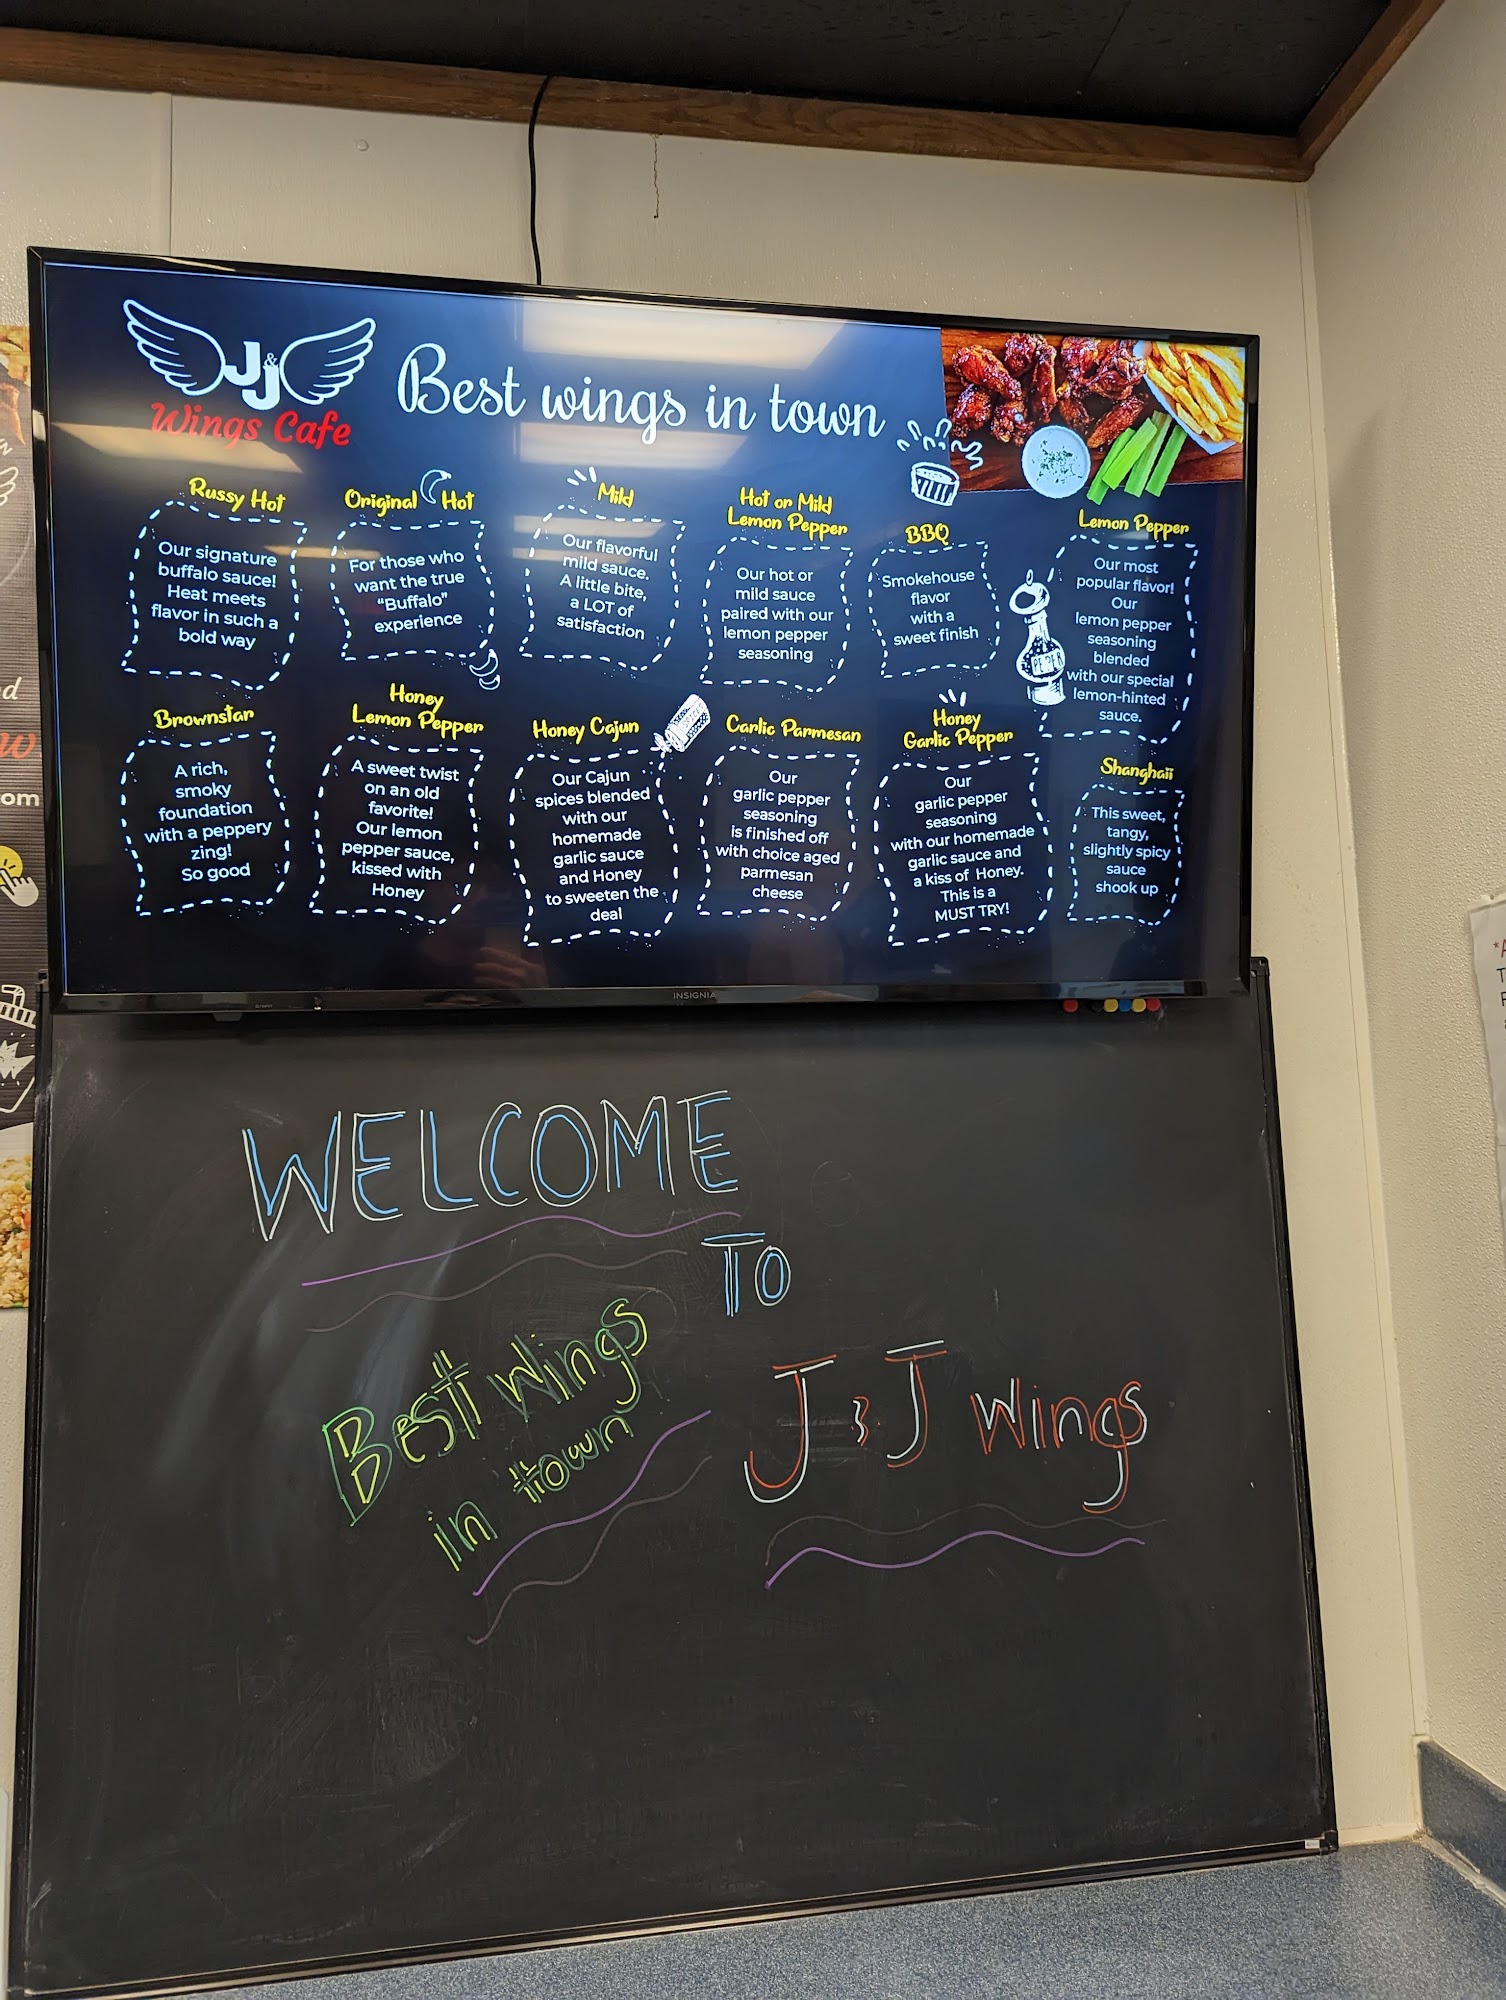 J&J
Wings Cafe
Best wings in town
Russy Hot
Our signature
buffalo sauce!
Heat meets
flavor in such a
bold way
Original Hot
For those who
want the true
"Buffalo"
experience
Mild
Our flavorful
mild sauce.
A little bite,
a LOT of
satisfaction
Hot or Mild
Lemon Pepper
Our hot or
mild sauce
paired with our
lemon pepper
seasoning
BBQ
Smokehouse
flavor
with a
sweet finish
PEPER
Lemon Pepper
Our most
popular flavor!
Our
lemon pepper
seasoning
blended
with our special
lemon-hinted
sauce.
Brownstar
A rich,
smoky
foundation
with a peppery
zing!
So good
Honey
Lemon Pepper
A sweet twist
on an old
favorite!
Our lemon
pepper sauce,
kissed with
Honey
Honey Cajun
Our Cajun
spices blended
with our
homemade
garlic sauce
and Honey
to sweeten the
deal
Garlic Parmesan
Our
garlic pepper
seasoning
is finished off
with choice aged
parmesan
cheese
Honey
Garlic Pepper
Our
garlic pepper
seasoning
with our homemade
garlic sauce and
a kiss of Honey.
This is a
MUST TRY!
Shanghaii
This sweet,
tangy,
slightly spicy
sauce
shook up
INSIGNIA
WELCOME
TO
Best Wings
in town
J & J Wings
om